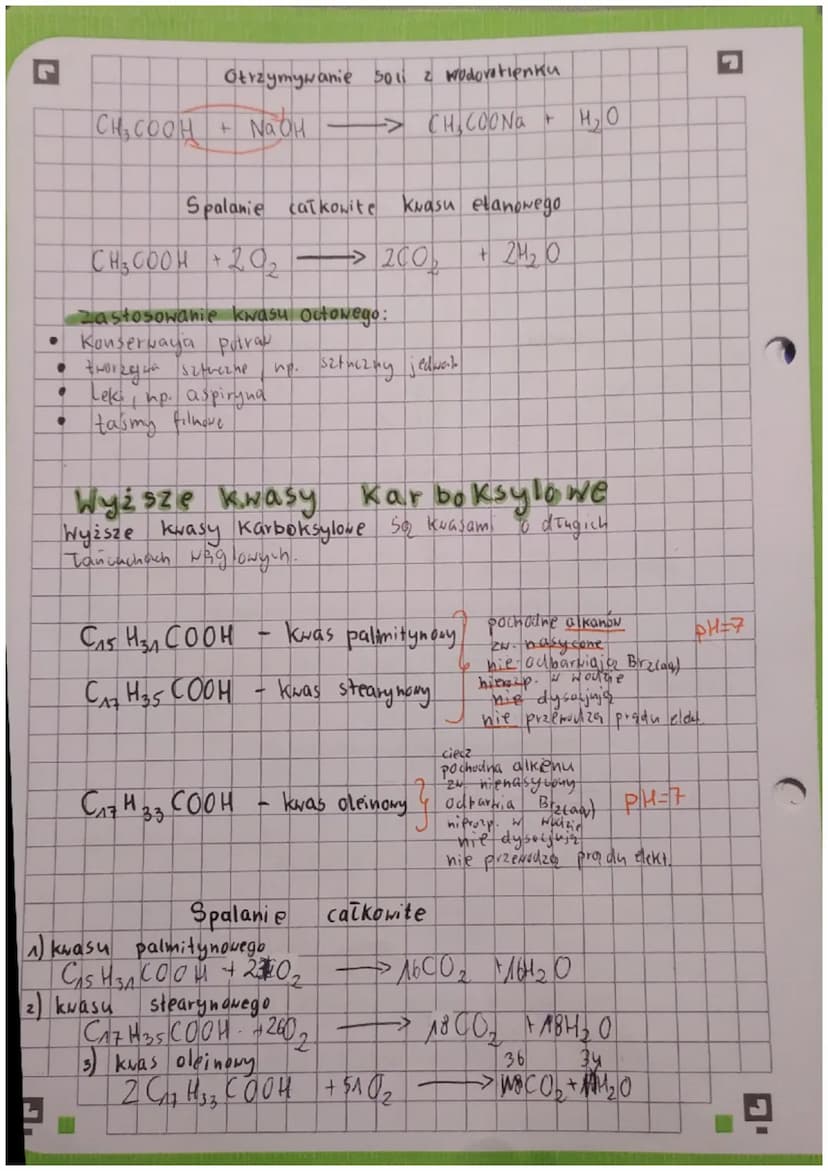 Otrzymywanie soli z wodorotlenku
CH₃COOH + NaOH ⟶ CH₃COONa + H₂O
Spalanie całkowite kwasu etanowego
CH₃COOH + 2O₂ ⟶ 2CO₂ + 2H₂O
Zastosowanie kwasu octowego:
• Konserwacja potraw
• tworzywa sztuczne, np. sztuczny jedwab
• Leki, np. aspiryna
• taśmy filmowe
Wyższe kwasy Karboksylowe
Wyższe kwasy Karboksylowe są kwasami o długich
łańcuchach węglowych.
C₁₅H₃₁COOH - kwas palmitynowy
C₁₇H₃₅COOH - kwas stearynowy
pochodne alkanów
zw. nasycone
nie odbarwiają Br₂(aq)
nierozp. w wodzie
nie dysocjują
nie przewodzą prądu elekt.
pH=7
C₁₇H₃₃COOH - kwas oleinowy
ciecz
pochodna alkenu
zw. nienasycony
odbarwia Br₂(aq)
nierozp. w wodzie
nie dysocjują
nie przewodzą prądu elekt.
pH=7
Spalanie całkowite
1) kwasu palmitynowego
C₁₅H₃₁COOH + 23O₂ ⟶ 16CO₂ + 16H₂O
2) kwasu stearynowego
C₁₇H₃₅COOH + 26O₂ ⟶ 18CO₂ + 18H₂O
3) kwas oleinowy
2C₁₇H₃₃COOH + 51O₂ ⟶ 36CO₂ + 34H₂O